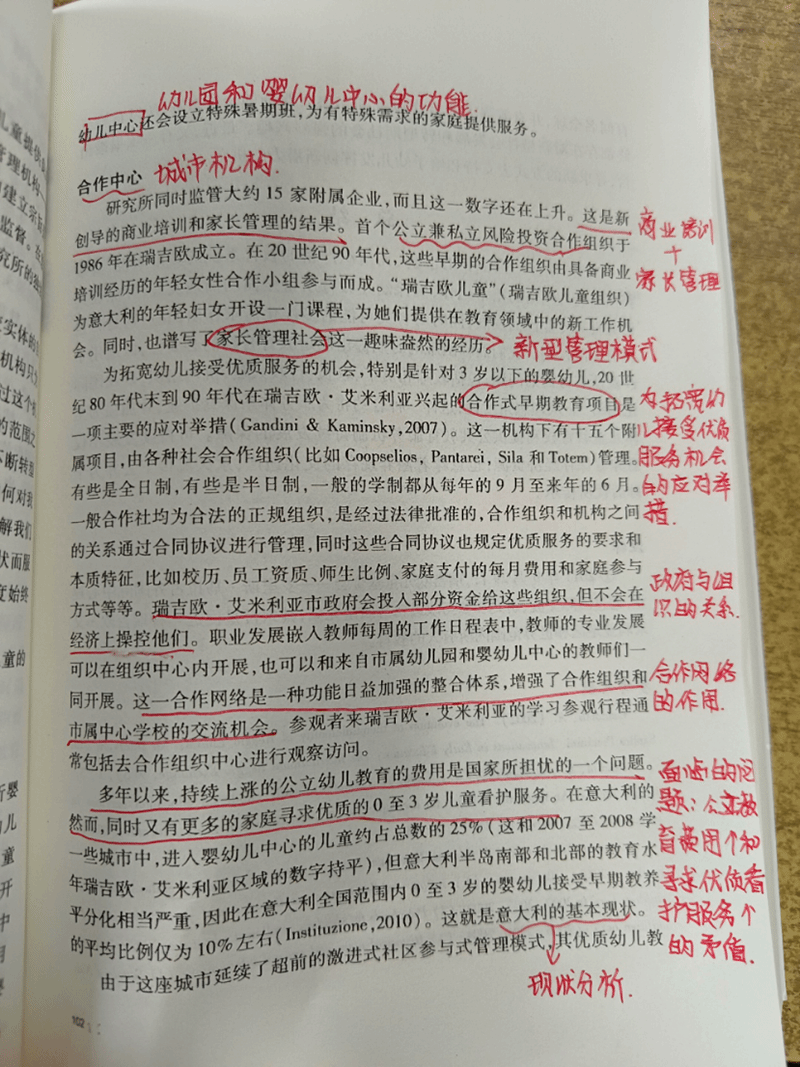 幼儿园和婴幼儿中心的功能.
幼儿中心还会设立特殊暑期班，为有特殊需求的家庭提供服务。
合作中心 城市机构.
研究所同时监管大约 15 家附属企业，而且这一数字还在上升。这是新
创导的商业培训和家长管理的结果。首个公立兼私立风险投资合作组织于
1986 年在瑞吉欧成立。在 20 世纪 90 年代，这些早期的合作组织由具备商业
培训经历的年轻女性合作小组参与而成。“瑞吉欧儿童”(瑞吉欧儿童组织)
为意大利的年轻妇女开设一门课程，为她们提供在教育领域中的新工作机
会。同时，也谱写了家长管理社会这一趣味盎然的经历。
商业培训
+
家长管理
新型管理模式
为拓宽幼儿接受优质服务的机会，特别是针对 3 岁以下的婴幼儿，20 世
纪 80 年代末到 90 年代在瑞吉欧·艾米利亚兴起的合作式早期教育项目是
一项主要的应对举措(Gandini & Kaminsky,2007)。这一机构下有十五个附
属项目，由各种社会合作组织(比如 Coopselios, Pantarei, Sila 和 Totem)管理。
有些是全日制，有些是半日制，一般的学制都从每年的 9 月至来年的 6 月。
一般合作社均为合法的正规组织，是经过法律批准的，合作组织和机构之间
的关系通过合同协议进行管理，同时这些合同协议也规定优质服务的要求和
本质特征，比如校历、员工资质、师生比例、家庭支付的每月费用和家庭参与
方式等等。瑞吉欧·艾米利亚市政府会投入部分资金给这些组织，但不会在
经济上操控他们。职业发展嵌入教师每周的工作日程表中，教师的专业发展
可以在组织中心内开展，也可以和来自市属幼儿园和婴幼儿中心的教师们一
同开展。这一合作网络是一种功能日益加强的整合体系，增强了合作组织和
市属中心学校的交流机会。参观者来瑞吉欧·艾米利亚的学习参观行程通
常包括去合作组织中心进行观察访问。
为拓宽幼
儿接受优质
服务机会
的应对举
措.
政府与组
织的关系.
合作网络
的作用.
多年以来，持续上涨的公立幼儿教育的费用是国家所担忧的一个问题。
然而，同时又有更多的家庭寻求优质的 0 至 3 岁儿童看护服务。在意大利的
一些城市中，进入婴幼儿中心的儿童约占总数的 25%(这和 2007 至 2008 学
年瑞吉欧·艾米利亚区域的数字持平)，但意大利半岛南部和北部的教育水
平分化相当严重，因此在意大利全国范围内 0 至 3 岁的婴幼儿接受早期教养
的平均比例仅为 10%左右(Instituzione,2010)。这就是意大利的基本现状。
由于这座城市延续了超前的激进式社区参与式管理模式，其优质幼儿教
面临的问
题：公立教
育费用个和
寻求优质看
护服务个
的矛盾.
现状分析.
102